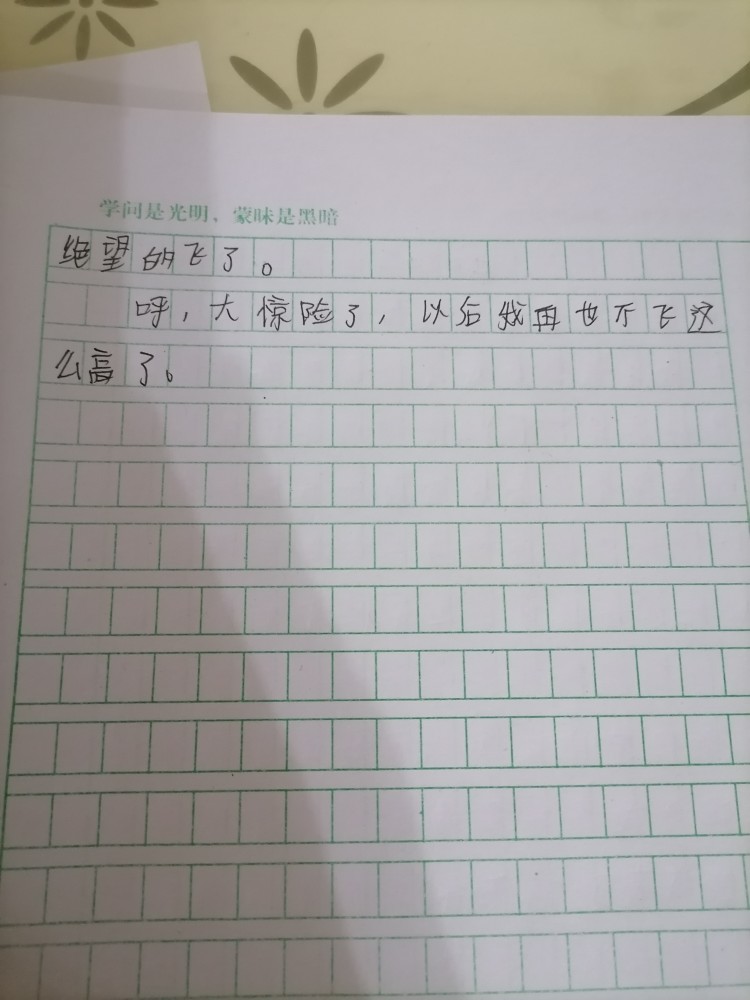 学问是光明，蒙昧是黑暗
绝望的飞了。
呼，大惊险了，以后我再也不飞这
么高了。